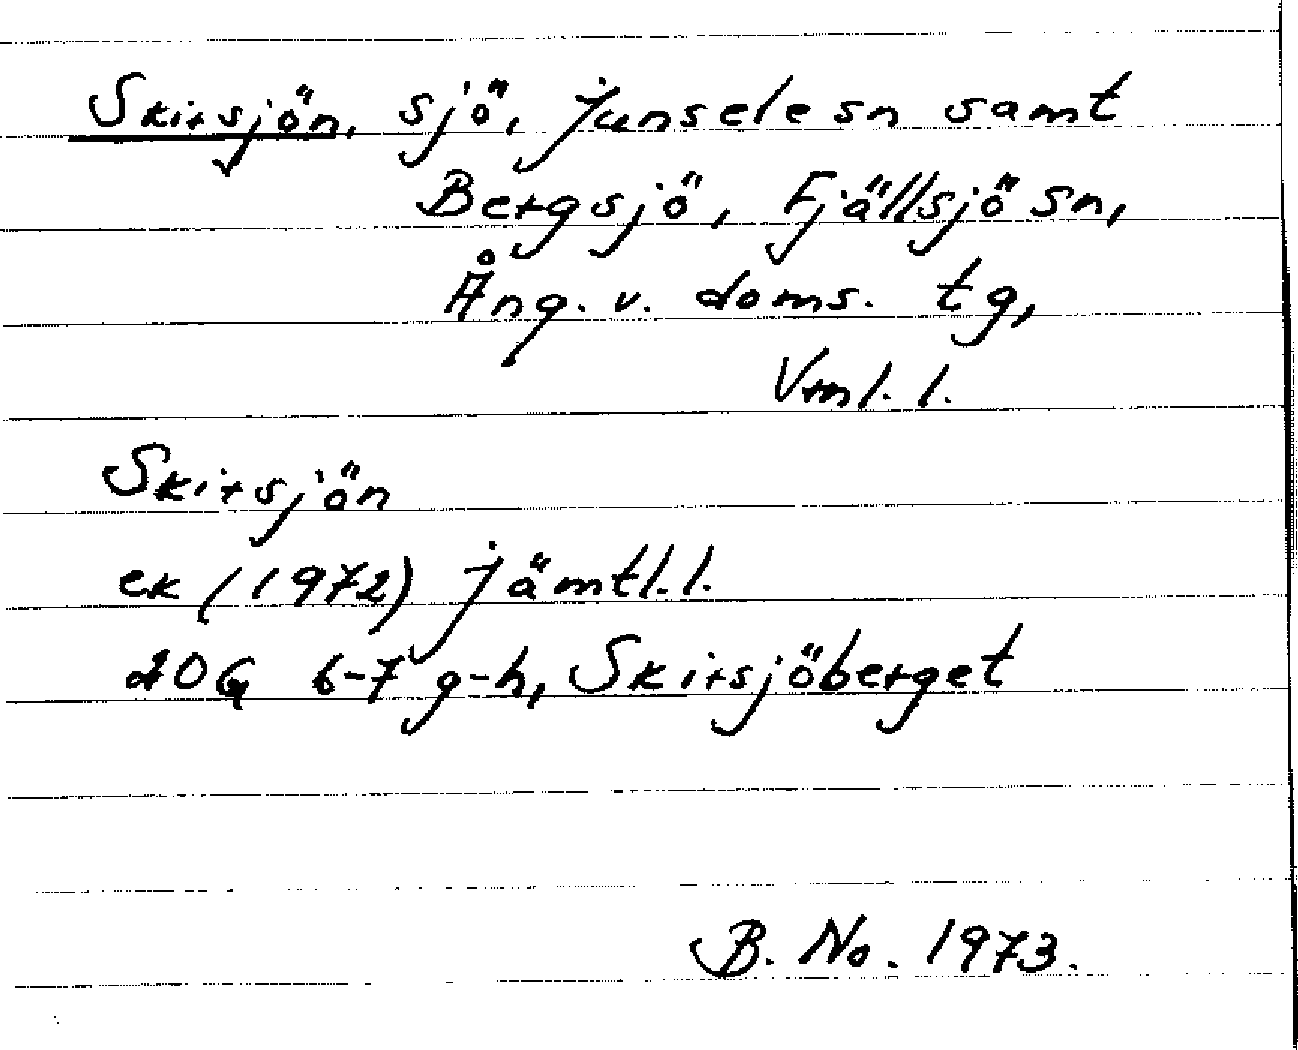 Skirsjön, sjö, Junsele sn samt
Bergsjö, Fjällsjö sn,
Ång. v. doms. tg,
Vrnl. l.
Skirsjön
ek (1972) Jämtl. l.
20G 6-7 g-h, Skirsjöberget
B. No. 1973.